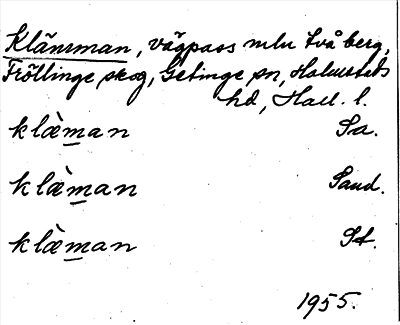 Klänsman, vägpass mln två berg,
Fröllinge skog, Getinge sn, Halmstads
hd, Hall. l.
klæ̀man Sa.
klæ̀man Sand.
klæ̀man St.
1955.